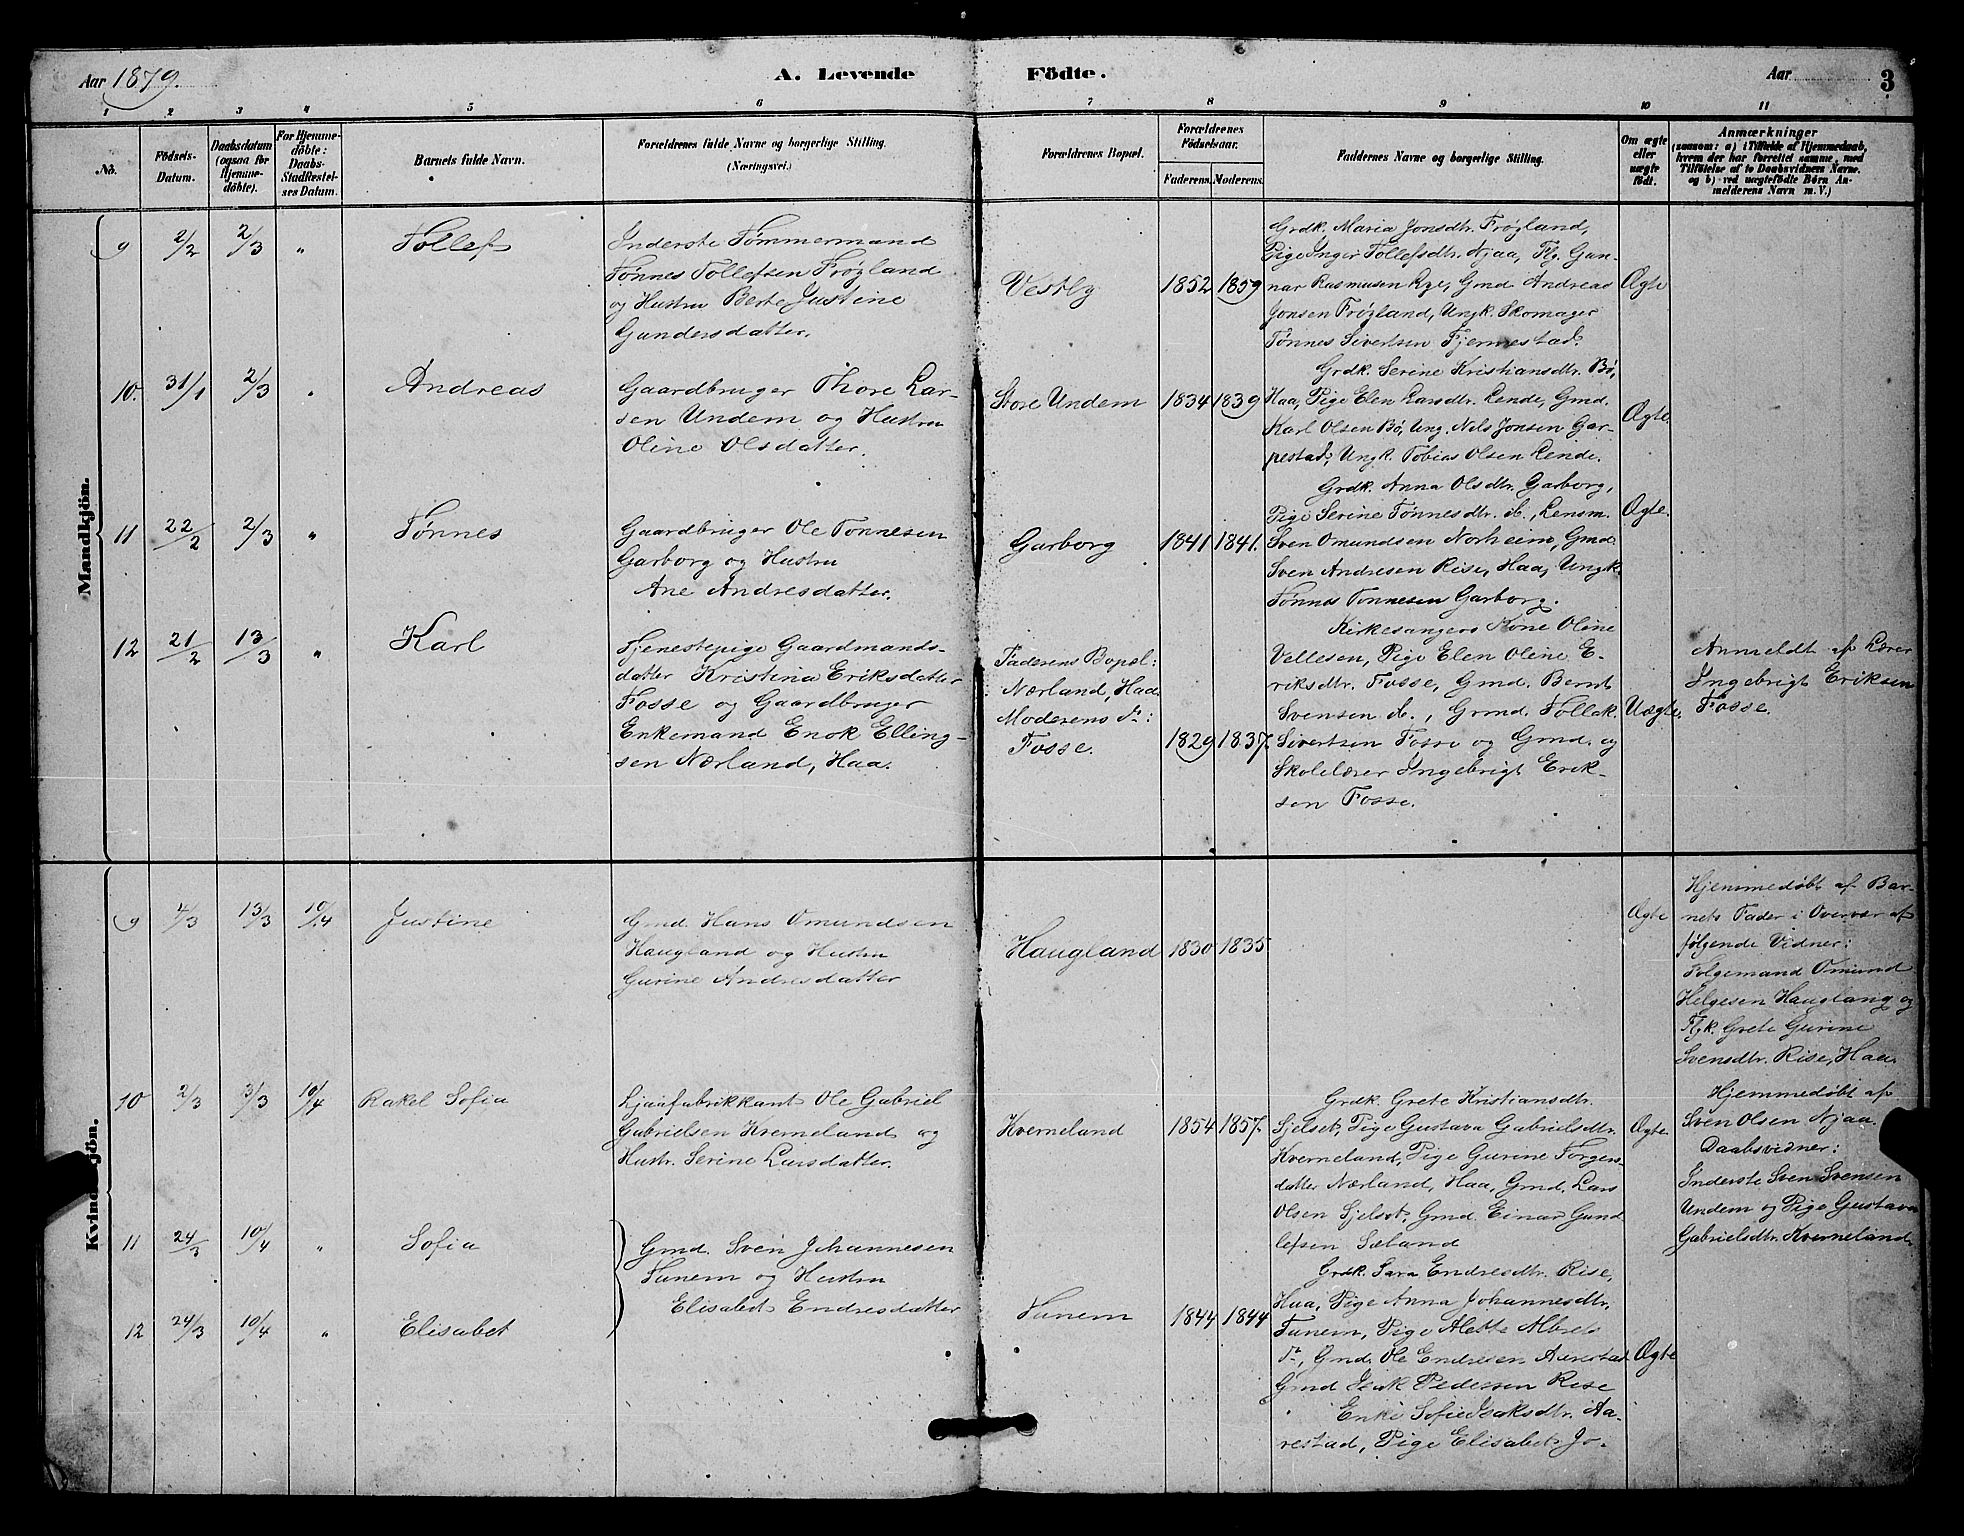 Aar 1879. A. Levende Födte. Aar 3
1 2 3 4 5 6 7 8 9 10 11
No.
Födsels-
Datum.
Daabsdatum
(ogsaa for
Hjemme-
døbte).
For Hjemme-
døbte:
Daabs-
Stadfæstel-
ses Datum.
Barnets fulde Navn.
Forældrenes fulde Navne og borgerlige Stilling.
(Næringsvei.)
Forældrenes Bopæl.
Forældrenes
Födselsaar.
Faderens. Moderens.
Faddernes Navne og borgerlige Stilling.
Om ægte
eller
uægte
født.
Anmærkninger
(saasom: a) i Tilfælde af Hjemmedaab,
hvem der har forrettet samme, med
Tilføielse af to Daabsvidners Navne.
og b) ved uægtefødte Børn An-
melderens Navn m. V.)
Mandkjön.
9 2/2 2/3 " Tollef
Inderste Tømmermand
Tønnes Tollefsen Frøyland
og Hustru Berte Justine
Gundersdatter.
Vestly 1852 1859
Grdk. Maria Jonsdtr. Frøyland,
Pige Inger Tollefsdtr. Njaa, Flg. Gun-
nar Rasmusen Rye, Gmd. Andreas
Jonsen Frøyland, Ungk. Skomager
Tønnes Sivertsen Tjernestad.
Ægte
10. 31/1 2/3 " Andreas
Gaardbruger Thore Lar-
sen Undem og Hustru
Oline Olsdatter.
Store Undem 1834 1839
Grdk. Serine Kristiansdtr. Bø,
Haa, Pige Elen Larsdtr. Lende, Gmd.
Karl Olsen Bø, Ung. Nels Jonsen Gar-
pestad, Ungk. Tobias Olsen Lende.
Ægte.
11 22/2 2/3 " Tønnes
Gaardbruger Ole Tønnesen
Garborg og Hustru
Ane Andresdatter.
Garborg 1841 1841.
Grdk. Anna Olsdtr. Garborg,
Pige Serine Tønnesdtr. ib., Lensm.
Sven Omundsen Norheim, Gmd.
Sven Andresen Rise, Haa, Ungk.
Tønnes Tønnesen Garborg.
Ægte.
12 21/2 13/3 " Karl
Tjenestepige Gaardmands-
datter Kristina Eriksdatter
Fosse og Gaardbruger
Enkemand Enok Elling-
sen Nærland, Haa.
Faderens Bopæl:
Nærland, Haa
Moderens do:
Fosse. 1829 1837.
Kirkesangers Kone Oline
Vellesen, Pige Elen Oline E-
riksdtr. Fosse, Gmd. Bernt
Svensen ib., Grmd. Tollak
Sivertsen Fosse og Gmd. og
Skolelærer Ingebrigt Erik-
sen Fosse.
Uægte.
Anmeldt af Lærer
Ingebrigt Eriksen
Fosse.
Kvindekjön.
9 4/3 13/3 10/4 Justine
Gmd. Hans Omundsen
Haugland og Hustru
Gurine Andresdatter
Haugland 1830 1835
Ægte
Hjemmedøbt af Bar-
nets Fader i Overvær af
følgende Vidner:
Folgemand Omund
Helgesen Haugland og
Flgk. Grete Gurine
Svensdtr. Rise, Haa.
10 2/3 3/3 10/4 Rakel Sofia
Ljaafabrikkant Ole Gabriel
Gabrielsen Kverneland og
Hustr. Serine Larsdatter.
Kverneland 1854 1857.
Grdk. Grete Kristiansdtr.
Sjelset, Pige Gustava Gabrielsdtr.
Kverneland, Pige Gurine Torgers-
datter Nærland, Haa, Gmd. Lars
Olsen Sjelset, Gmd. Einar Gund
lefsen Sæland
Ægte
Hjemmedøbt af
Sven Olsen Njaa.
Daabsvidner:
Inderste Sven Svensen
Undem og Pige Gustava
Gabrielsdtr. Kverneland.
11 24/3 10/4 " Sofia
Gmd. Sven Johannesen
Tunem og Hustru
Elisabet Endresdatter
12 24/3 10/4 " Elisabet
Tunem 1844 1844
Grdk. Sara Endresdtr. Rise,
Haa, Pige Anna Johannesdtr.
Tunem, Pige Alette Albrets
do, Gmd. Ole Endresen Aarestad
Gmd Isak Pedersen Rise
Enke Sofie Isaksdtr. Aa-
restad, Pige Elisabet Jo-
Ægte